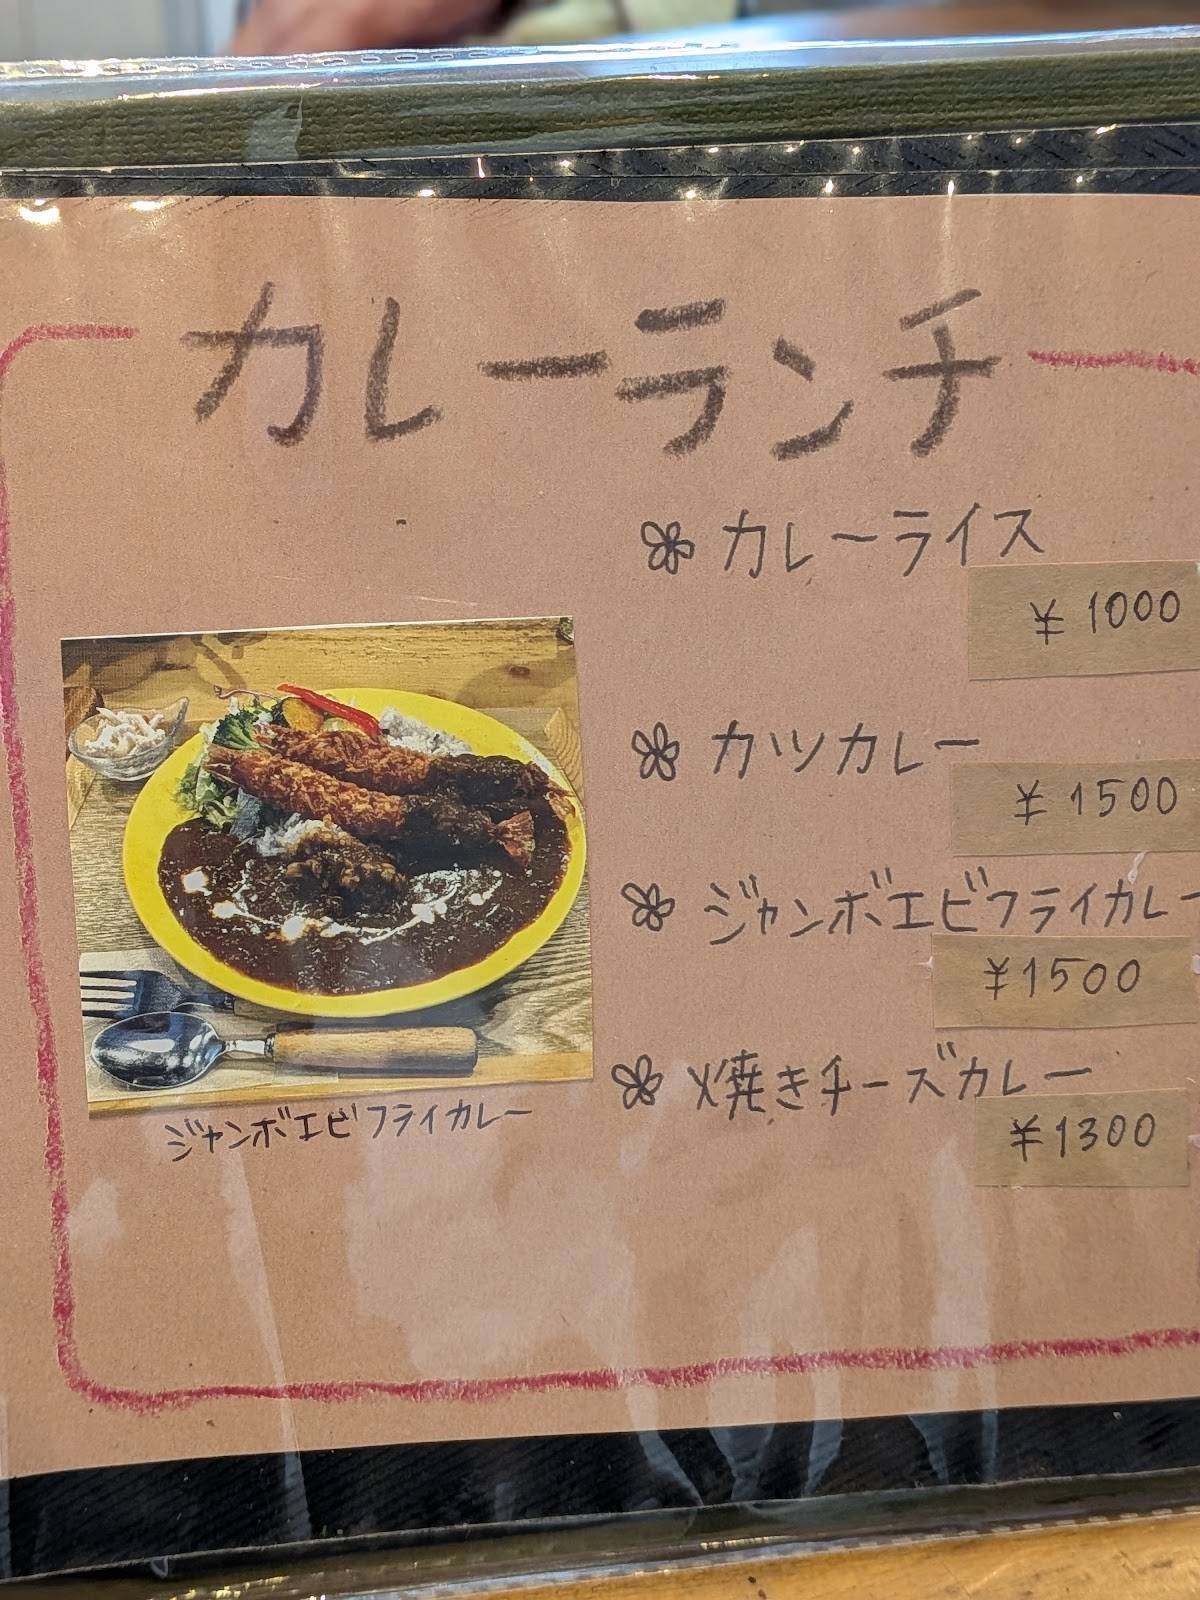 カレーランチ
カレーライス
¥1000
カツカレー
¥1500
ジャンボエビフライカレー
¥1500
焼きチーズカレー
¥1300
ジャンボエビフライカレー